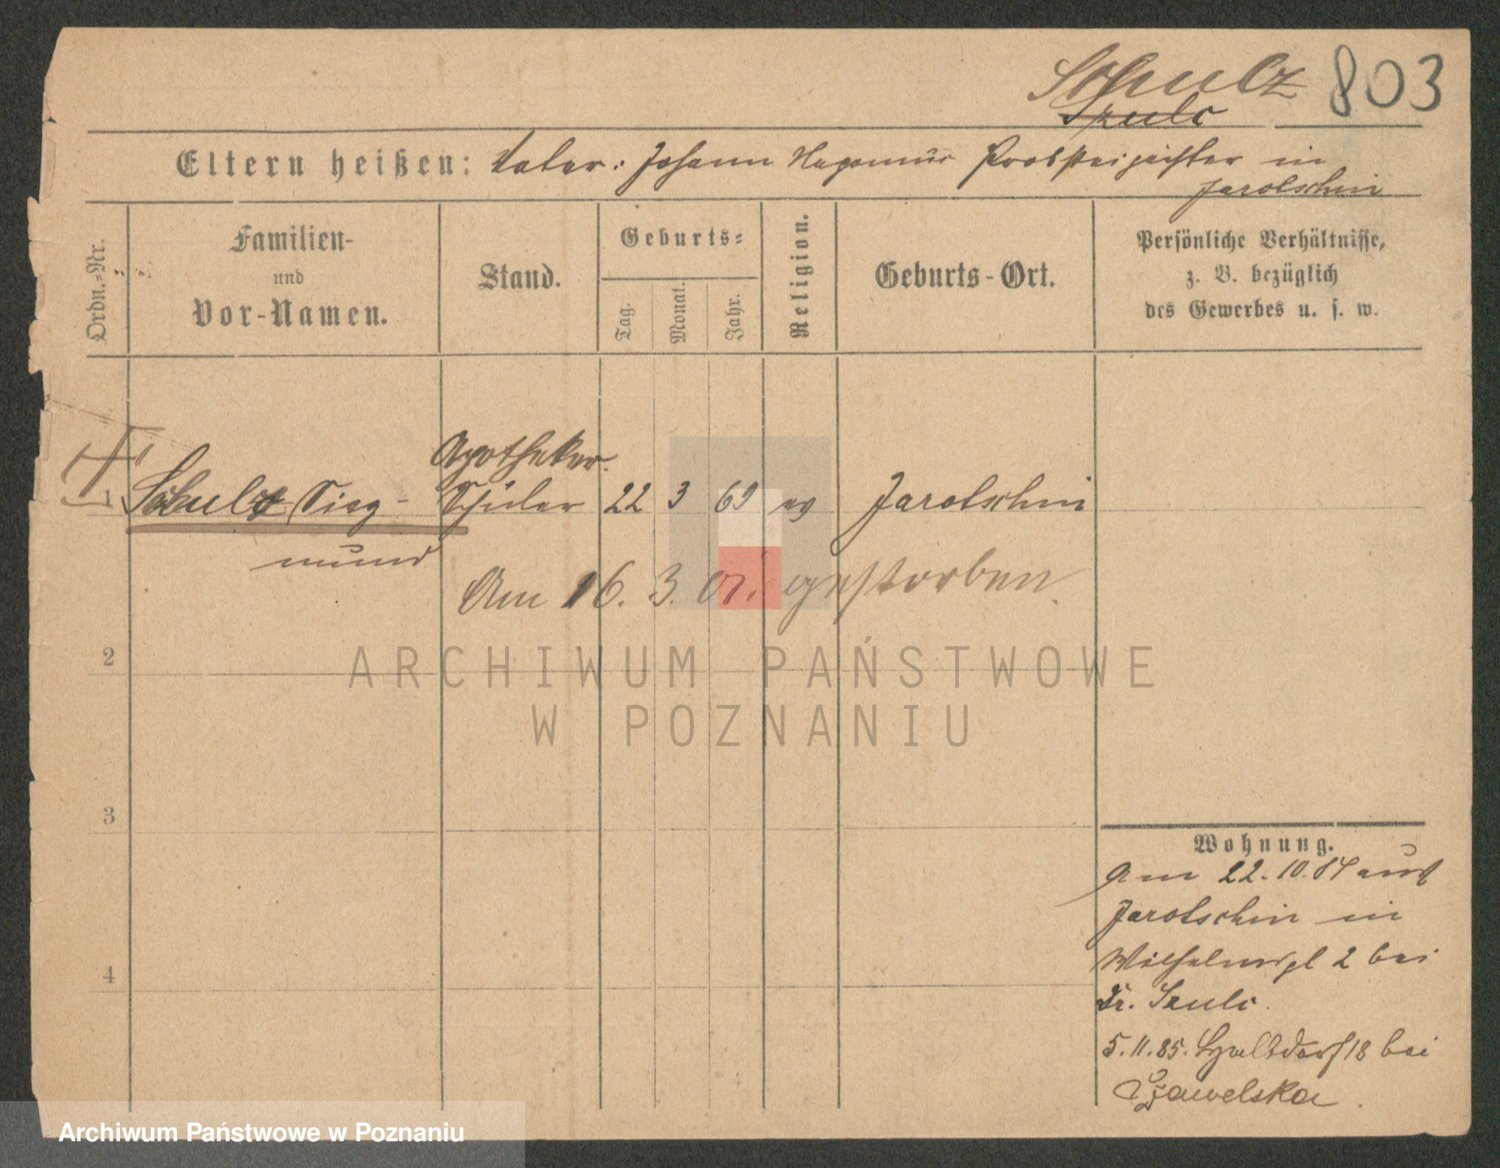 Schulz 803
Szulc
Eltern heißen: Vater: Johann Nepomuc Probsteipächter in
Jarotschin
Ordn.-Nr.
Familien-
und
Vor-Namen.
Stand.
Geburts-
Tag.
Monat.
Jahr.
Religion.
Geburts-Ort.
Persönliche Verhältnisse,
z. B. bezüglich
des Gewerbes u. s. w.
Apotheker
1 Schulz Sieg- Schüler 22 3 69 Jarotschin
mund
Am 16. 3. 01. gestorben.
2
ARCHIWUM PAŃSTWOWE
W POZNANIU
3
Wohnung.
Am 22.10.84 aus
Jarotschin in
Wilhelmspl 2 bei
Dr. Szulc.
4
5.11.85. 18 bei
Czawelska.
Archiwum Państwowe w Poznaniu